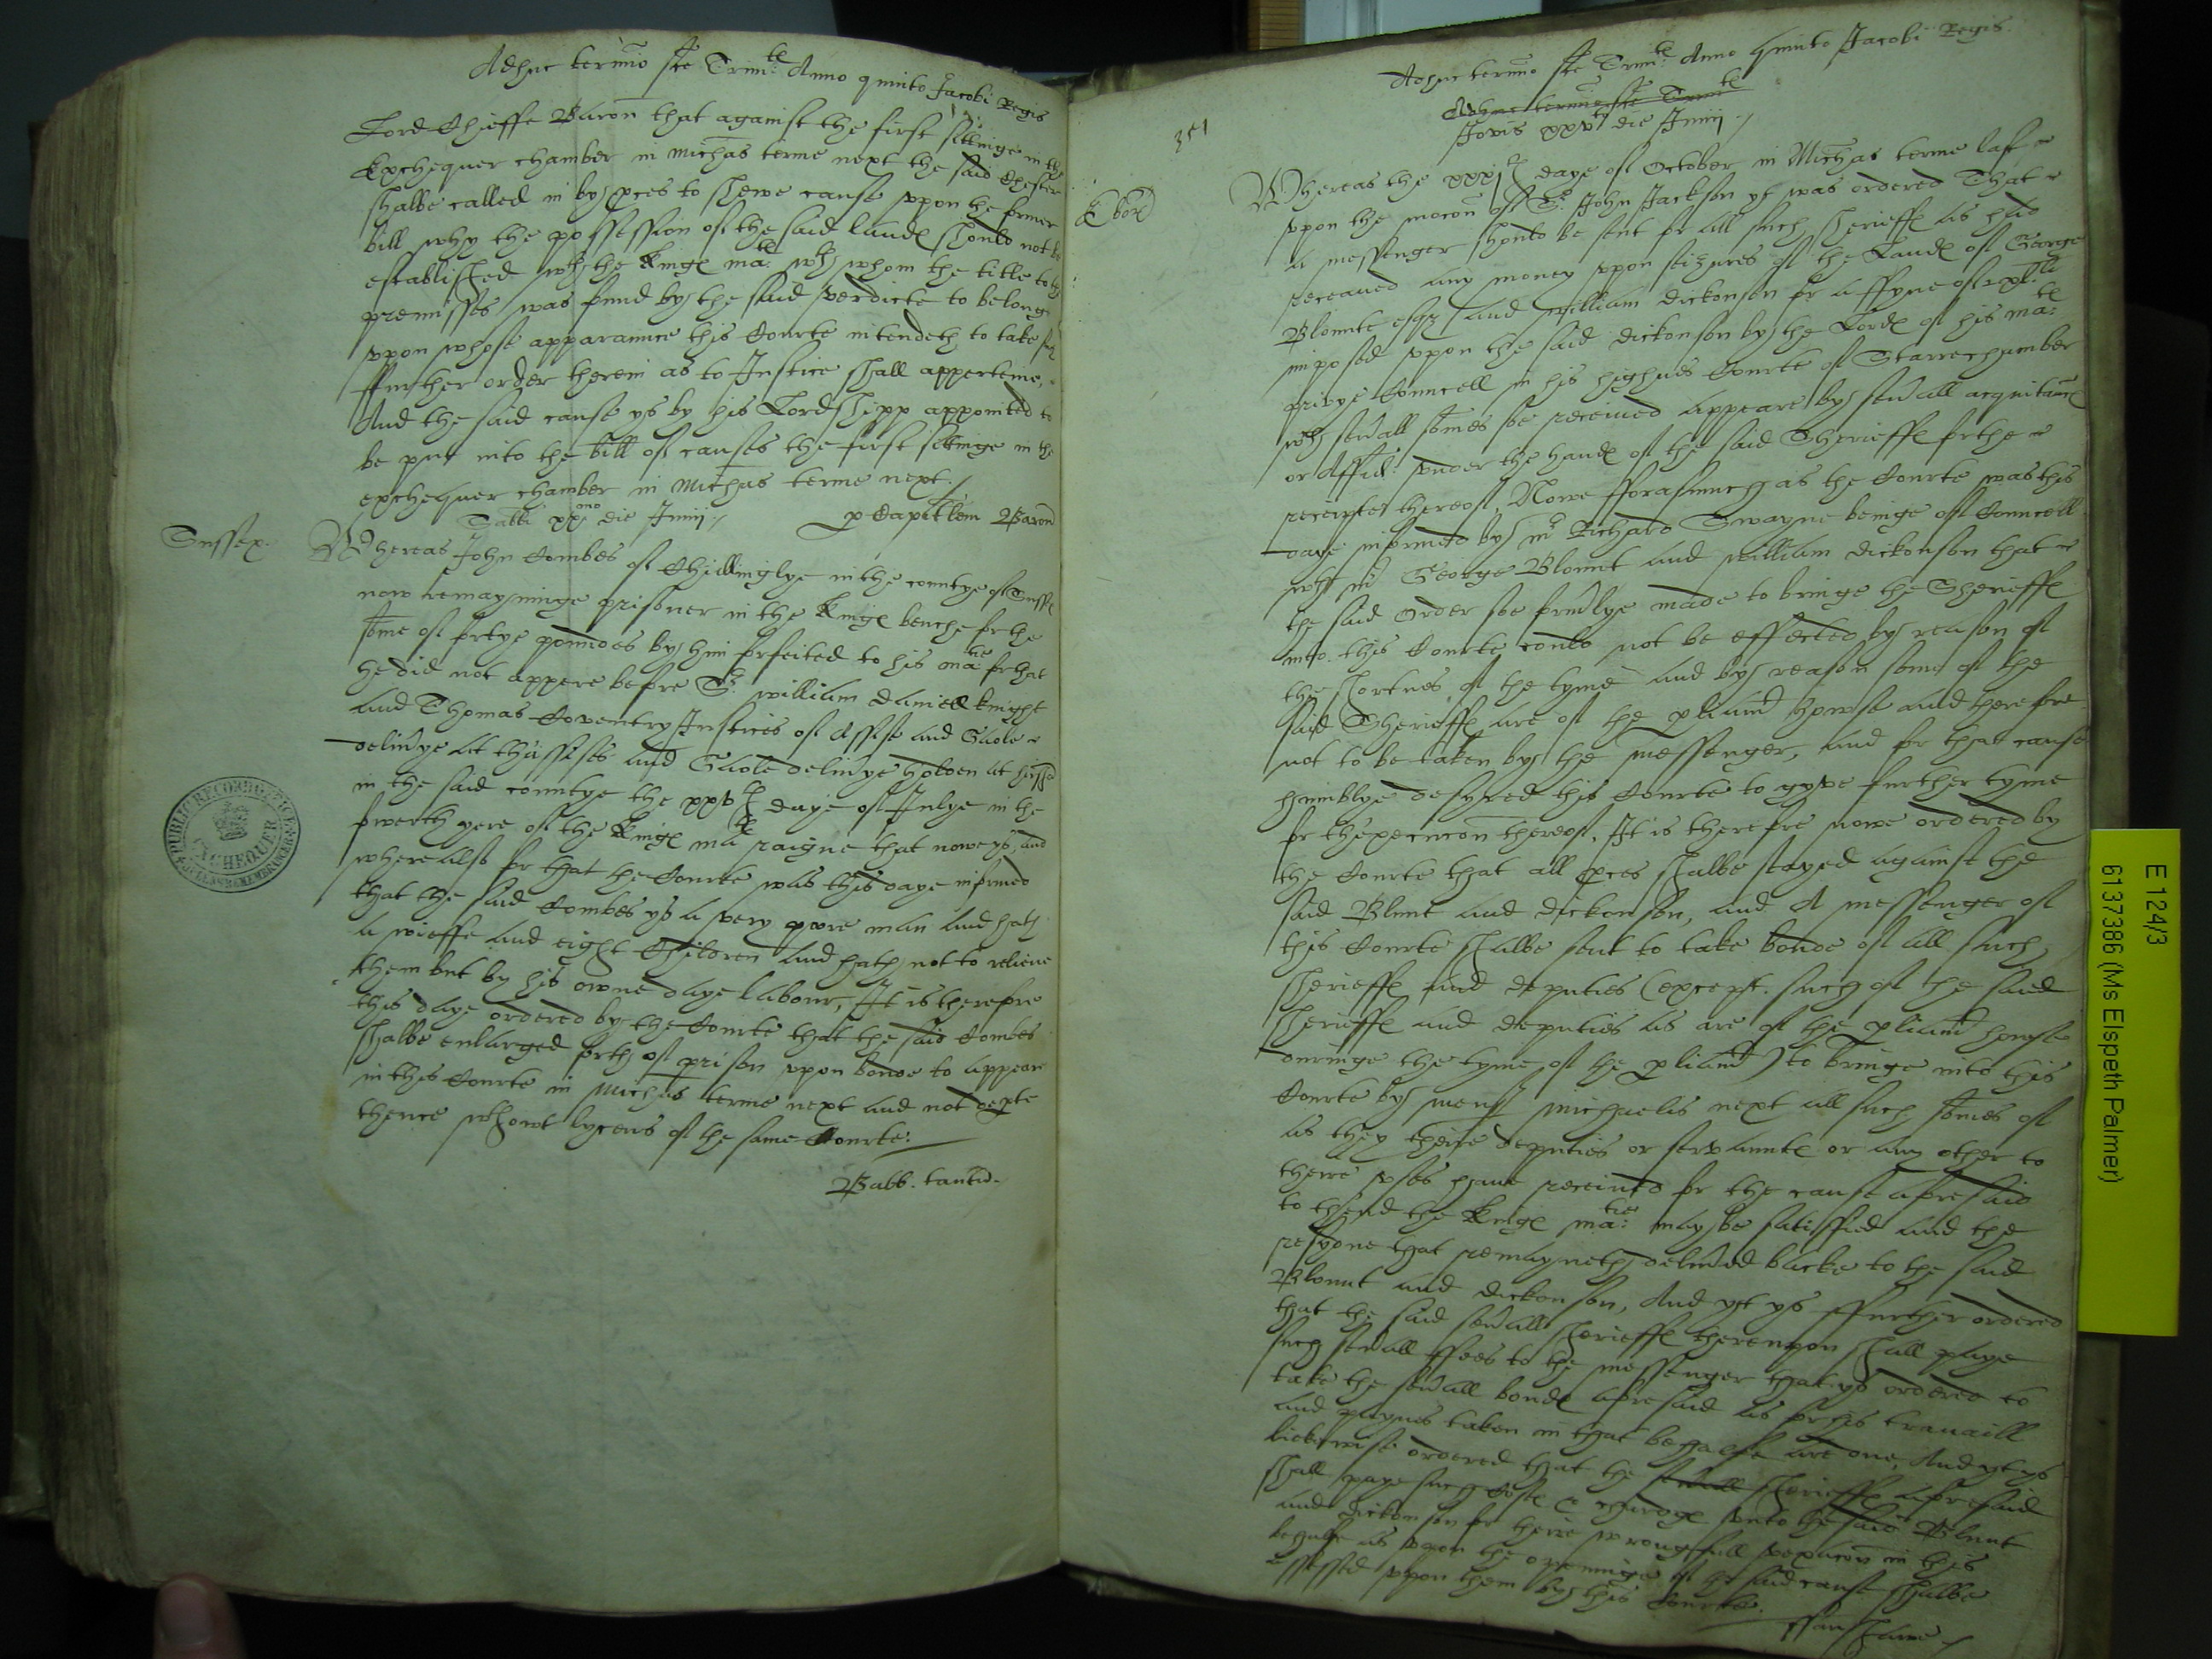 Adhuc termino sce Trinit Anno quinto Jacobi Regis
Lord Chieffe Baron that against the first sittinge in the
Exchequer chamber in Michas terme next the said Chester
shalbe called in by pces to shewe cause vpon the former
bill why the possession of the said landes should not be
established wth the Kinges matie wth whom the title to the
premisses was found by the said verdicte to belonge
vpon whose apparaunce this Courte intendeth to take
ffurther order therein as to Justice shall apperteine,
And the said cause ys by his Lordshipp appointed to
be put into the bill of causes the first sittinge in the
exchequer chamber in Michas terme next.
Sabti xxmo die Junij p Capitlem Baron
Sussex.
Whereas John Combes of Chillinglye in the countye of Sussex
now remayninge prisoner in the Kinges benche for the
some of fortye poundes by him forfeited to his matie for that
he did not appere before Sr. william daniell knight
and Thomas Coventry Justices of Assise and Gaole
deliuye at thassises and Gaole deliuye holden at
in the said countye the xxvth daye of Julye in the
fowerth yere of the Kinges mates raigne that nowe ys, and
where also for that the Courte was this daye informed
that the said Combes ys a very pore man and hath
a wieffe and eight Children and hath not to relieue
them but by his owne daye labour, It is therefore
this daye ordered by the Courte that the said Combes
shalbe enlarged forth of prison vpon bonde to appeare
in this Courte in Michas terme next and not depte
thence wthowt lycens of the same Courte.
Babb. tantu.
PUBLIC RECORD OFFICE
EXCHEQUER
Adhuc termino sce Trinit Anno quinto Jacobi Regis.
Adhuc termino sce Trinit
Jovis xxvto die Junij
351
Ebor
Whereas the xxxjth daye of October in Michas terme last
vpon the mocon of Sr. John Jackson yt was ordered That
a messenger should be sent for all such sherieffes as had
receaued any money vpon seizures of the Landes of George
Blounte esqr and william dickonson for a ffyne of
imposed vpon the said dickonson by the Lordes of his mates
privye Councell in his highnes Courte of Starrechamber
wch seuall somes soe receiued appeare by seuall acquitances
or Affid: vnder the handes of the said Sherieffes for the
receipte thereof, Nowe fforasmuch as the Courte was this
daye informed by mr Richard Swayne beinge of Councell
wth mr George Blount and william dickonson that
the said Order soe formlye made to bringe the Sherieffes
into this Courte could not be effected by reason of
the shortnes of the tyme and by reason some of the
said Sherieffes are of the pliamt howse and therefore
not to be taken by the messenger, and for that cause
humblye desyred this Courte to gyve further tyme
for thexecucon thereof, It is therefore nowe ordered by
the Courte that all pces shalbe stayed against the
said Blunt and dickonson, and A messenger of
this Courte shalbe sent to take bonde of all such
sherieffes and deputies (except such of the said
sherieffes and deputies as are of the pliamt howse
duringe the tyme of the pliamt) to bringe into this
Courte by mens Michaelis next all such somes of
as they theire deputies or servauntes or any other to
theire vses haue receiued for the cause aforesaid
to thend the Kinges matie: may be satisfied and the
resydue that remayneth deliued backe to the said
Blount and dickonson, And yt ys ffurther ordered
that the said seuall sherieffes therevpon shall paye
such seuall ffees to the messenger that ys ordered to
take the seuall bondes aforesaid as for his travaill
and paynes taken in that behalfe are due, And yt ys
lickewise ordered that the seuall sherieffes aforesaid
shall paye such costes & chardges vnto the said Blunt
and dickonson for theire wrongfull vexacon in this
behalfe as vpon the openinge of the said cause shalbe
assessed vpon them by this Courte.
ffanshawe
E 124/3
6137386 (Ms Elspeth Palmer)